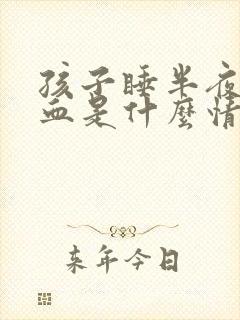 孩子睡半夜
血是什麼情
来年今日